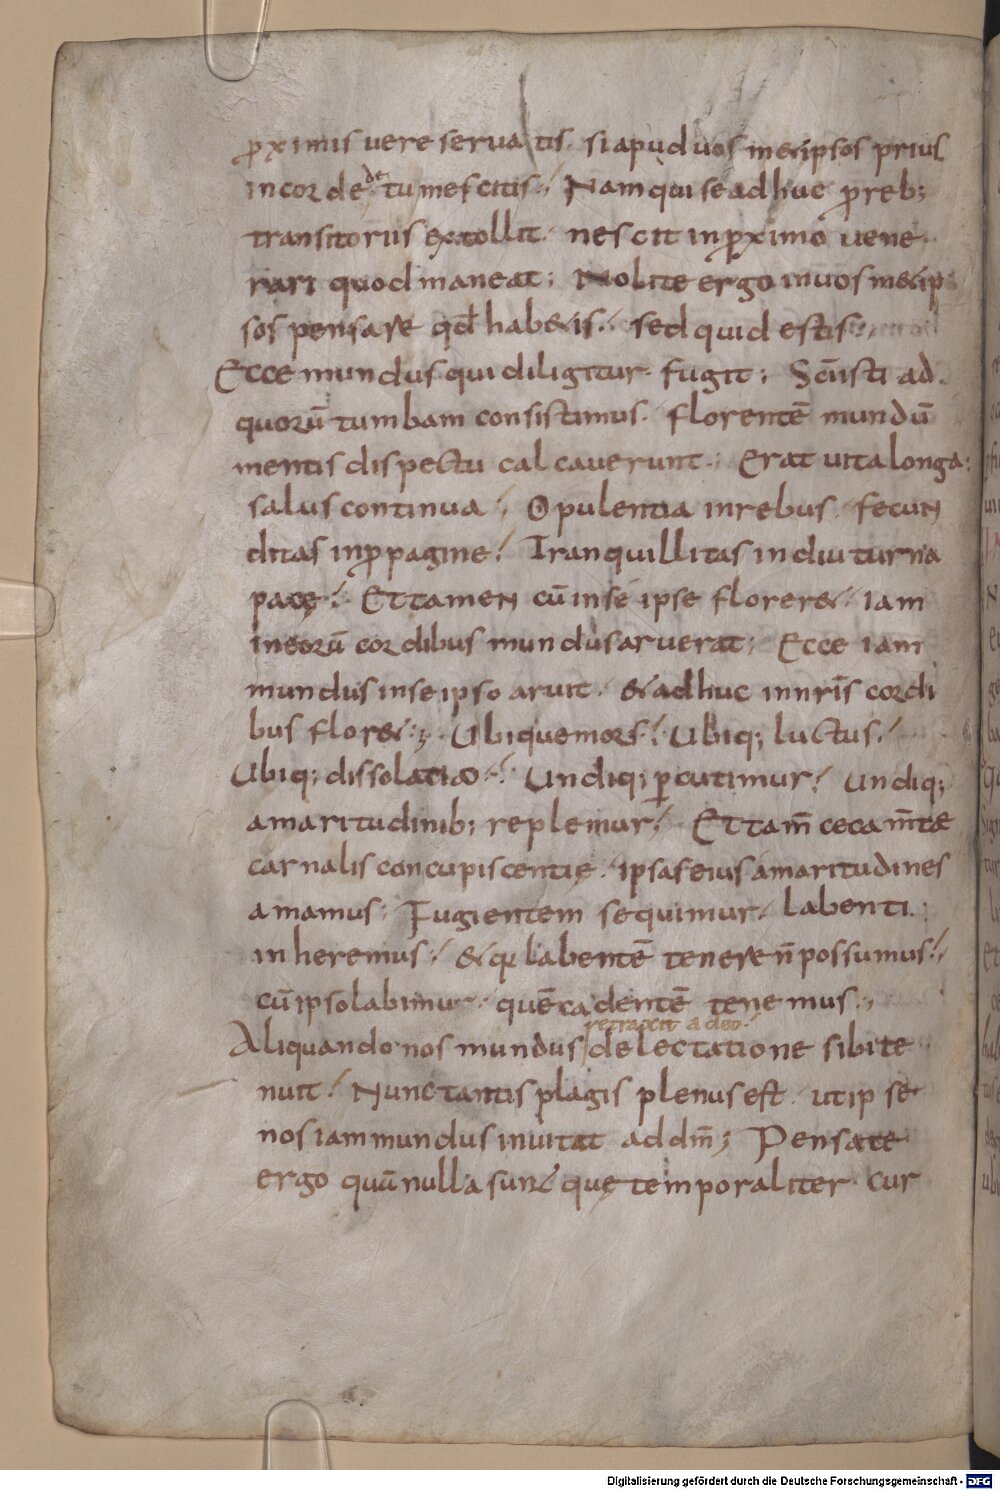 ꝓximis vere servatis. si apud vos met ipsos prius
in corde detumescitis; Nam qui se adhuc ꝓ reb;
transitoriis extollit. nescit in ꝓximo vene
rari quod maneat; Nolite ergo in vos met ip
sos pensare qđ hab&is. sed quid estis;
Ecce mundus qui diligitur. fugit; Sc̄i isti ad
quorū tumbam consistimus. florentē mundū
mentis dispectu calcaverunt; Erat vita longa;
salus continua. Opulentia in rebus. fecun
ditas in ꝓpagine. Tranquillitas in diuturna
pace. Et tamen cū in se ipse florer&. iam
in eorū cordibus mundus aruerat; Ecce iam
mundus in se ipso aruit. & adhuc in nr̄is cordi
bus flor&; Ubique mors. Ubiq; luctus.
Ubiq; dissolatio. Undiq; ꝑcutimur. undiq;
amaritudinib; replemur. Et tam̄ ceca m̄te
carnalis concupiscentię. ipsas eius amaritudines
amamus; Fugientem sequimur. labenti
inheremus. & q labentē tenere n̄ possumus.
cū ipso labimur. quē cadentē tenemus;
retraxit a deo
Aliquando nos mundus delectatione sibi te
nuit. Nunc tantis plagis plenus est. ut ipse
nos iam mundus invitat ad dm̄; Pensate
ergo quā nulla sunt quę temporaliter cur
Digitalisierung gefördert durch die Deutsche Forschungsgemeinschaft - DFG